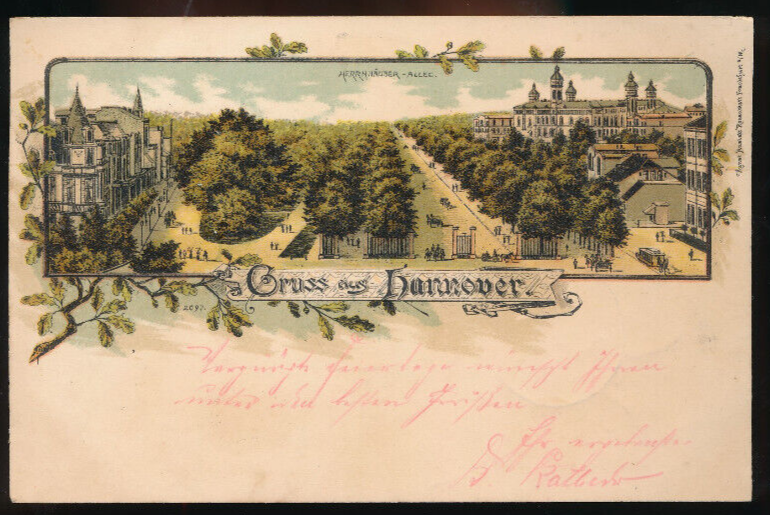 HERRNHÄUSER - ALLEE.
Gruss aus Hannover.
2697.
Vergnügte Feiertage wünscht Ihnen
unter den besten Grüßen
Ihr ergebenster
Kalbers